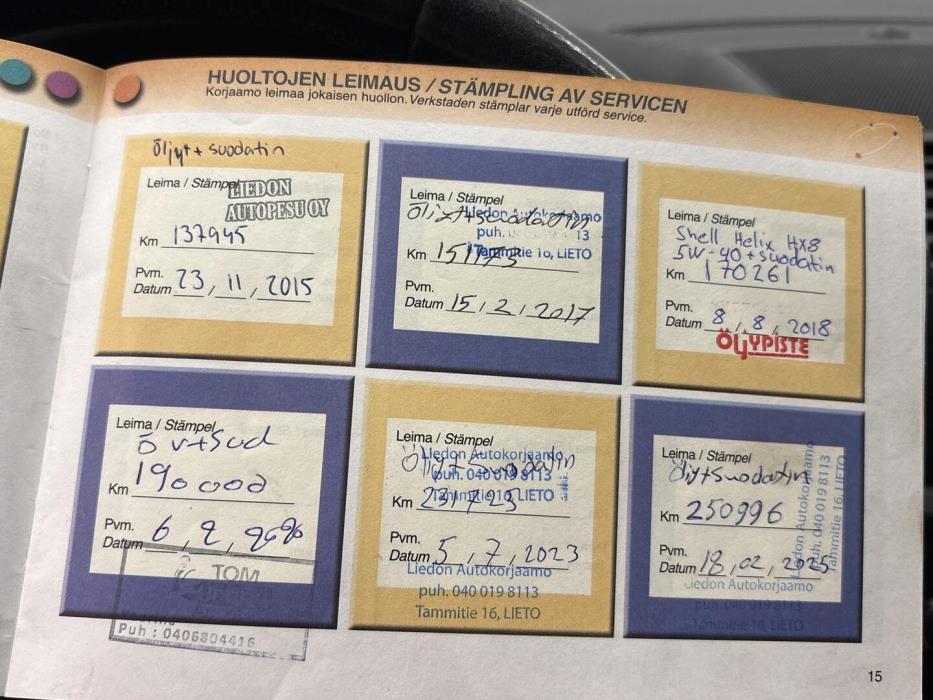 HUOLTOJEN LEIMAUS / STÄMPLING AV SERVICEN
Korjaamo leimaa jokaisen huollon. Verkstaden stämplar varje utförd service.
Öljyt + suodatin
Leima / Stämpel
LIEDON
AUTOPESU OY
Km 137945
Pvm.
Datum 23, 11, 2015
Leima / Stämpel
Öljyt+suodatin
Liedon Autokorjaamo
puh. 13
Tammitie 16, LIETO
Km
Pvm.
Datum 15, 2, 2017
Leima / Stämpel
Shell Helix HX8
5W-40 + suodatin
Km 170261
Pvm.
Datum 8, 8, 2018
ÖLJYPISTE
Leima / Stämpel
Ö v+sud
Km 190000
Pvm.
Datum 6, 2,
TOM
Puh : 0406804416
Leima / Stämpel
Öljyt+suodatin
Liedon Autokorjaamo
puh. 040 019 8113
Tammitie 16, LIETO
Km 231725
Pvm.
Datum 5, 7, 2023
Liedon Autokorjaamo
puh. 040 019 8113
Tammitie 16, LIETO
Leima / Stämpel
Öljyt+suodatin
Km 250996
Pvm.
Datum 18, 02, 2025
Liedon Autokorjaamo
puh. 040 019 8113
Tammitie 16, LIETO
Liedon Autokorjaamo
puh. 040 019 8113
Tammitie 16, LIETO
15